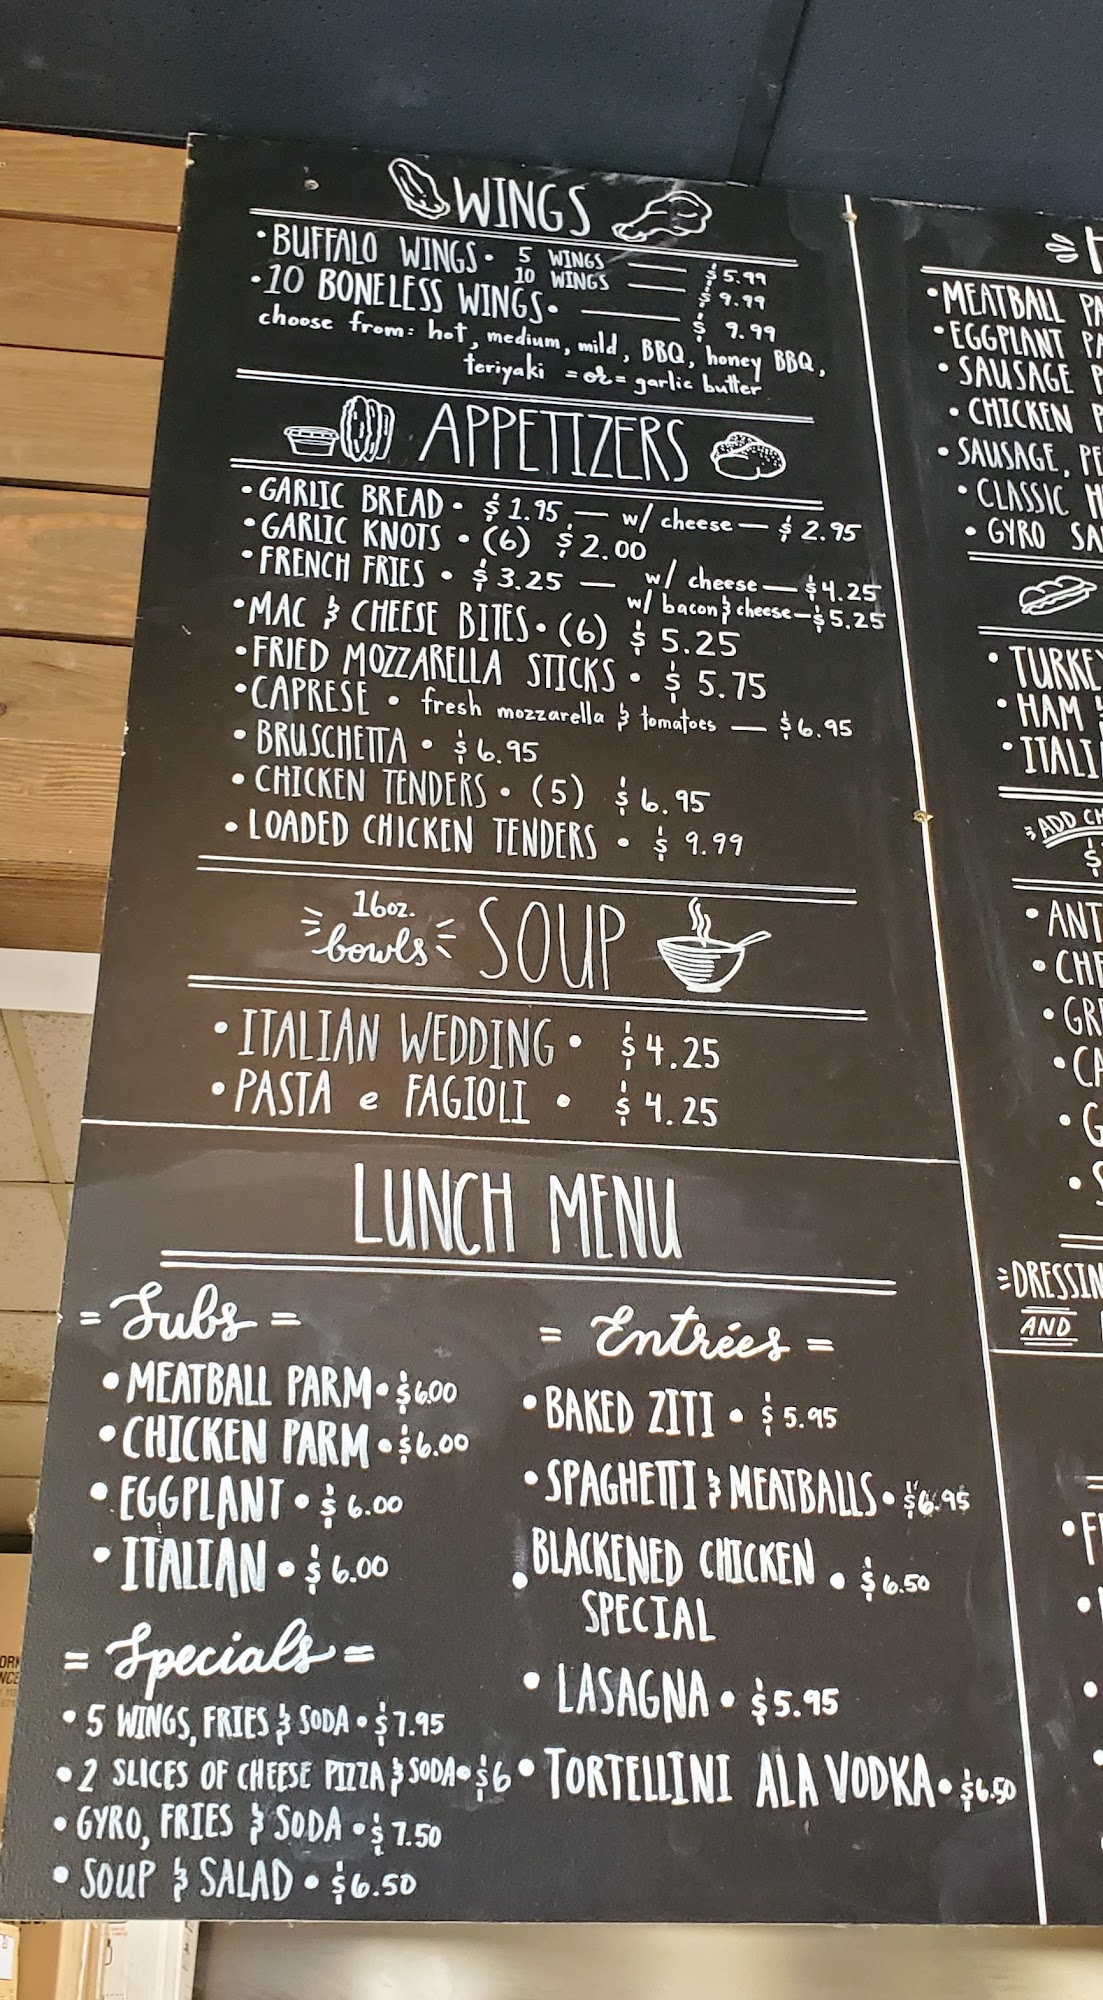 WINGS
• BUFFALO WINGS • 5 WINGS — $5.99
10 WINGS — $9.99
• 10 BONELESS WINGS • — $9.99
choose from: hot, medium, mild, BBQ, honey BBQ,
teriyaki =or= garlic butter
APPETIZERS
• GARLIC BREAD • $1.95 — w/ cheese — $2.95
• GARLIC KNOTS • (6) $2.00
• FRENCH FRIES • $3.25 — w/ cheese — $4.25
w/ bacon & cheese — $5.25
• MAC & CHEESE BITES • (6) $5.25
• FRIED MOZZARELLA STICKS • $5.75
• CAPRESE • fresh mozzarella & tomatoes — $6.95
• BRUSCHETTA • $6.95
• CHICKEN TENDERS • (5) $6.95
• LOADED CHICKEN TENDERS • $9.99
16oz.
bowls SOUP
• ITALIAN WEDDING • $4.25
• PASTA e FAGIOLI • $4.25
LUNCH MENU
= Subs =
• MEATBALL PARM • $6.00
• CHICKEN PARM • $6.00
• EGGPLANT • $6.00
• ITALIAN • $6.00
= Specials =
• 5 WINGS, FRIES & SODA • $7.95
• 2 SLICES OF CHEESE PIZZA & SODA • $6
• GYRO, FRIES & SODA • $7.50
• SOUP & SALAD • $6.50
= Entrées =
• BAKED ZITI • $5.95
• SPAGHETTI & MEATBALLS • $6.95
• BLACKENED CHICKEN • $6.50
SPECIAL
• LASAGNA • $5.95
• TORTELLINI ALA VODKA • $6.50
• MEATBALL
• EGGPLANT
• SAUSAGE
• CHICKEN
• SAUSAGE,
• CLASSIC
• GYRO
• HAM
ADD
$
AND